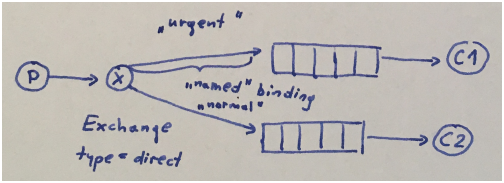 „urgent“
P
X
C1
„named“ binding
„normal“
Exchange
type = direct
C2